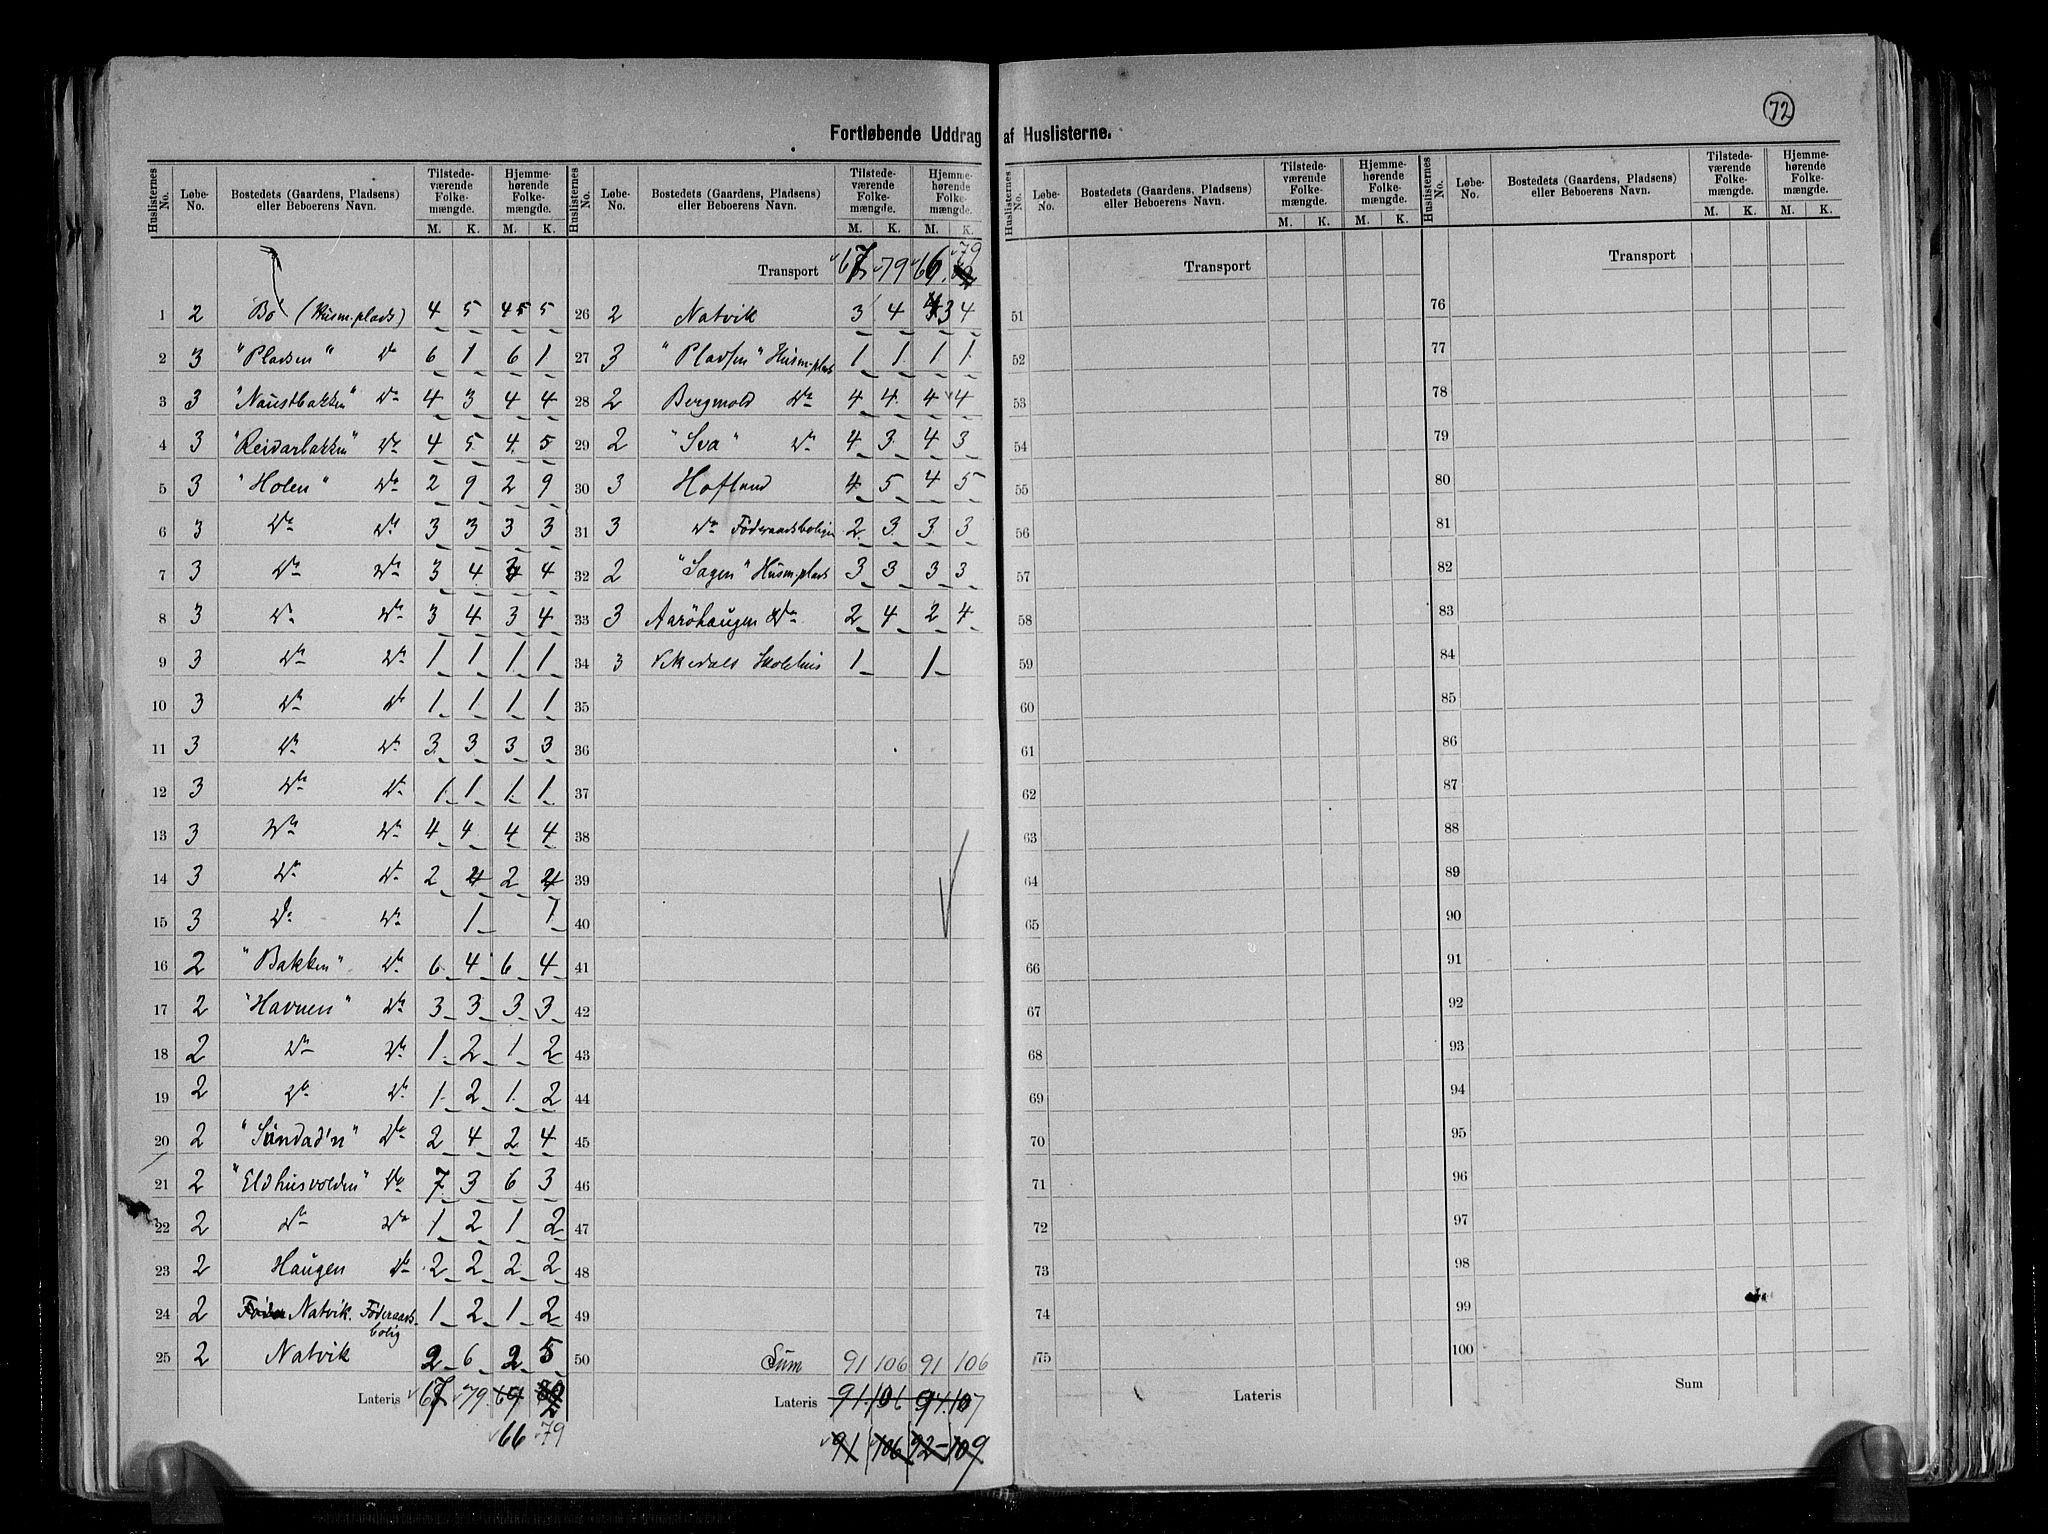 72
Fortløbende Uddrag af Huslisterne.
Huslisternes No. Løbe-No. Bostedets (Gaardens, Pladsens) eller Beboerens Navn. Tilstedeværende Folkemængde. M. K. Hjemmehørende Folkemængde. M. K.
1 2 Bö (Husm.plads) 4 5 4 5 5
2 3 "Pladsen" Do 6 1 6 1
3 3 "Naustbakken" Do 4 3 4 4
4 3 "Reidarbakken" Do 4 5 4 5
5 3 "Holen" Do 2 9 2 9
6 3 Do Do 3 3 3 3
7 3 Do Do 3 4 3 4
8 3 Do Do 3 4 3 4
9 3 Do Do 1 1 1 1
10 3 Do Do 1 1 1 1
11 3 Do Do 3 3 3 3
12 3 Do Do 1 1 1 1
13 3 Do Do 4 4 4 4
14 3 Do Do 2 4 2 4
15 3 Do Do 1 1
16 2 "Bakken" Do 6 4 6 4
17 2 "Havnen" Do 3 3 3 3
18 2 Do Do 1 2 1 2
19 2 Do Do 1 2 1 2
20 2 "Sundad'n" Do 2 4 2 4
21 2 "Eldhusvolden" Do 7 3 6 3
22 2 Do Do 1 2 1 2
23 2 Haugen Do 2 2 2 2
24 2 Natvik. Föderaadsbolig 1 2 1 2
25 2 Natvik 2 6 2 5
Lateris 67 79 69
66 79
Huslisternes No. Løbe-No. Bostedets (Gaardens, Pladsens) eller Beboerens Navn. Tilstedeværende Folkemængde. M. K. Hjemmehørende Folkemængde. M. K.
Transport 67 79 66 79
26 2 Natvik 3 4 3 4
27 3 "Pladsen" Husm.plads 1 1 1 1
28 2 Bergmold Do 4 4 4 4
29 2 "Sva" Do 4 3 4 3
30 3 Hofland 4 5 4 5
31 3 Do Föderaadsboligen 2 3 3 3
32 2 "Sagen" Husm.plads 3 3 3 3
33 3 Aaröhaugen Do 2 4 2 4
34 3 Vikedals Skolehus 1 1
35
36
37
38
39
40
41
42
43
44
45
46
47
48
49
50 Sum 91 106 91 106
Lateris 91 106 94 107
91 106 92 109
Huslisternes No. Løbe-No. Bostedets (Gaardens, Pladsens) eller Beboerens Navn. Tilstedeværende Folkemængde. M. K. Hjemmehørende Folkemængde. M. K.
Transport
51
52
53
54
55
56
57
58
59
60
61
62
63
64
65
66
67
68
69
70
71
72
73
74
75
Lateris
Huslisternes No. Løbe-No. Bostedets (Gaardens, Pladsens) eller Beboerens Navn. Tilstedeværende Folkemængde. M. K. Hjemmehørende Folkemængde. M. K.
Transport
76
77
78
79
80
81
82
83
84
85
86
87
88
89
90
91
92
93
94
95
96
97
98
99
100
Sum